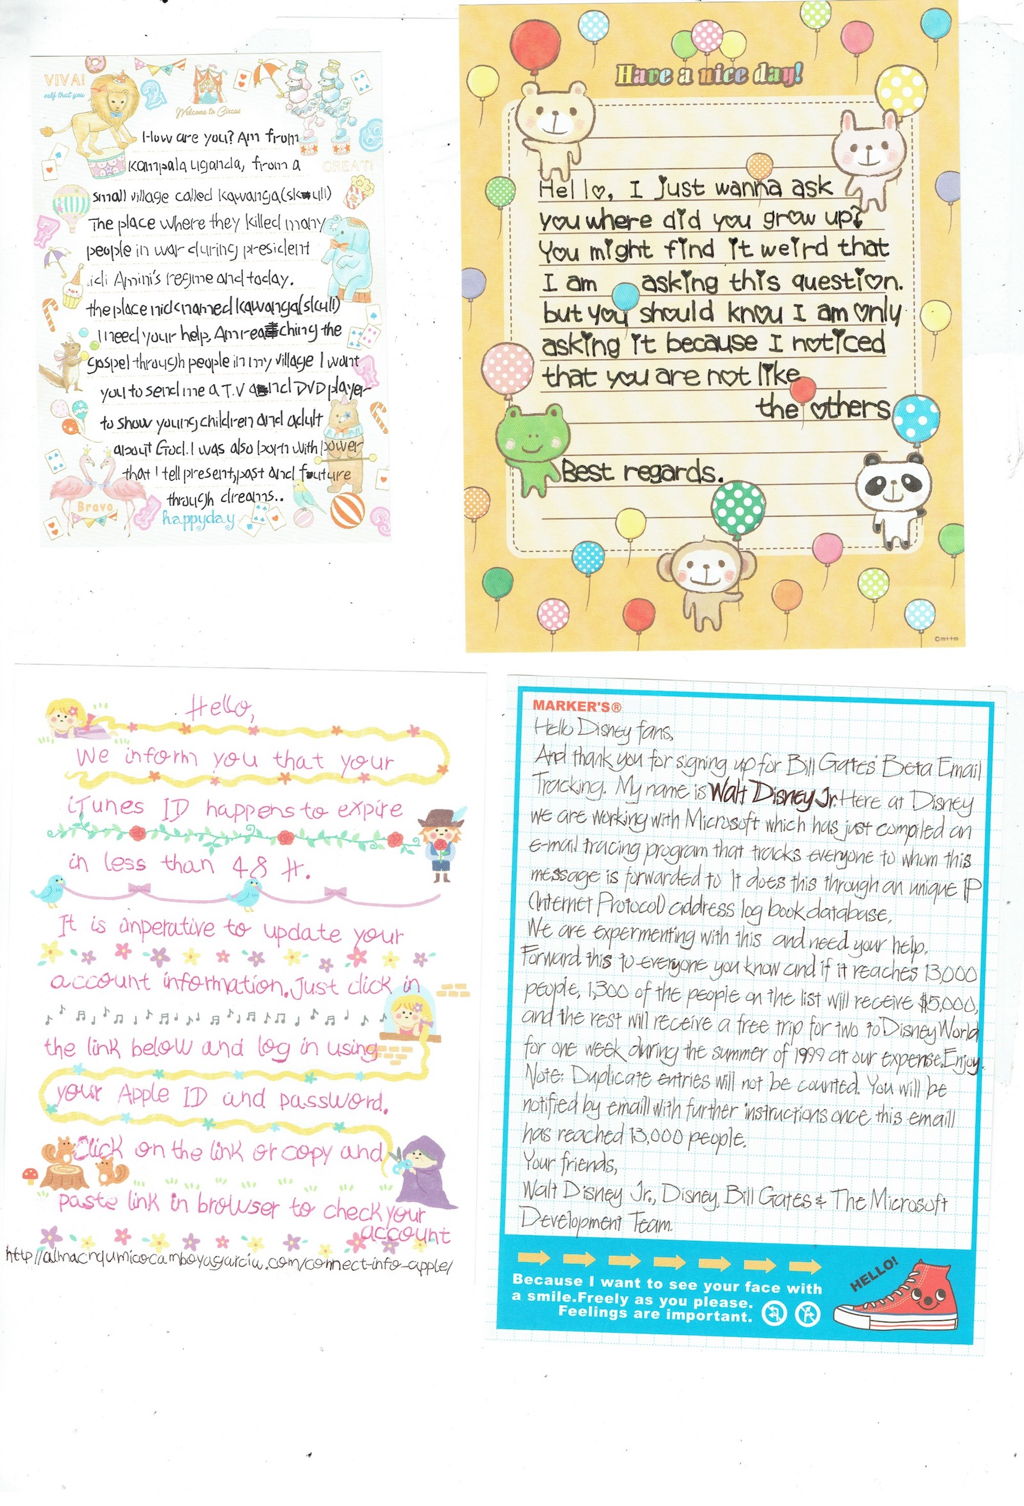 VIVA!
Welcome to Circus
How are you? Am from
GREAT!
Kampala Uganda, from a
small village called Kawanga(skuli)
The place where they killed many
people in war during president
idi Amini's regime and today.
the place nicknamed Kawanga(skuli)
I need your help. Am reaching the
gospel through people in my village I want
you to send me a T.V and DVD player
to show young children and adult
about God. I was also born with power
that I tell present, past and future
through dreams..
Bravo
happyday
Have a nice day!
Hello, I just wanna ask
you where did you grow up?
You might find it weird that
I am asking this question.
but you should know I am only
asking it because I noticed
that you are not like
the others
Best regards.
Hello,
We inform you that your
iTunes ID happens to expire
in less than 48 H.
It is inperative to update your
account information. Just click in
the link below and log in using
your Apple ID and password.
Click on the link or copy and
paste link in browser to check your
account
MARKER'S®
Hello Disney fans,
And thank you for signing up for Bill Gates' Beta Email
Tracking. My name is Walt Disney Jr. Here at Disney
we are working with Microsoft which has just compiled an
e-mail tracing program that tracks everyone to whom this
message is forwarded to It does this through an unique IP
(Internet Protocol) address log book database.
We are expermenting with this and need your help.
Forward this to everyone you know and if it reaches 13,000
people, 1,300 of the people on the list will receive $5,000,
and the rest will receive a free trip for two to Disney World
for one week during the summer of 1999 at our expense. Enjoy.
Note: Duplicate entries will not be counted. You will be
notified by emaill with further instructions once this emaill
has reached 13,000 people.
Your friends,
Walt Disney Jr., Disney, Bill Gates & The Microsoft
Development Team.
Because I want to see your face with
a smile. Freely as you please.
Feelings are important.
HELLO!